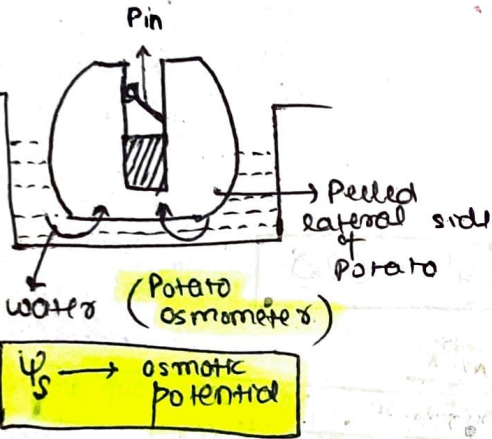 Pin
Peeled
lateral side
of
Potato
water
(Potato
osmometer)
ψs → osmotic
potential